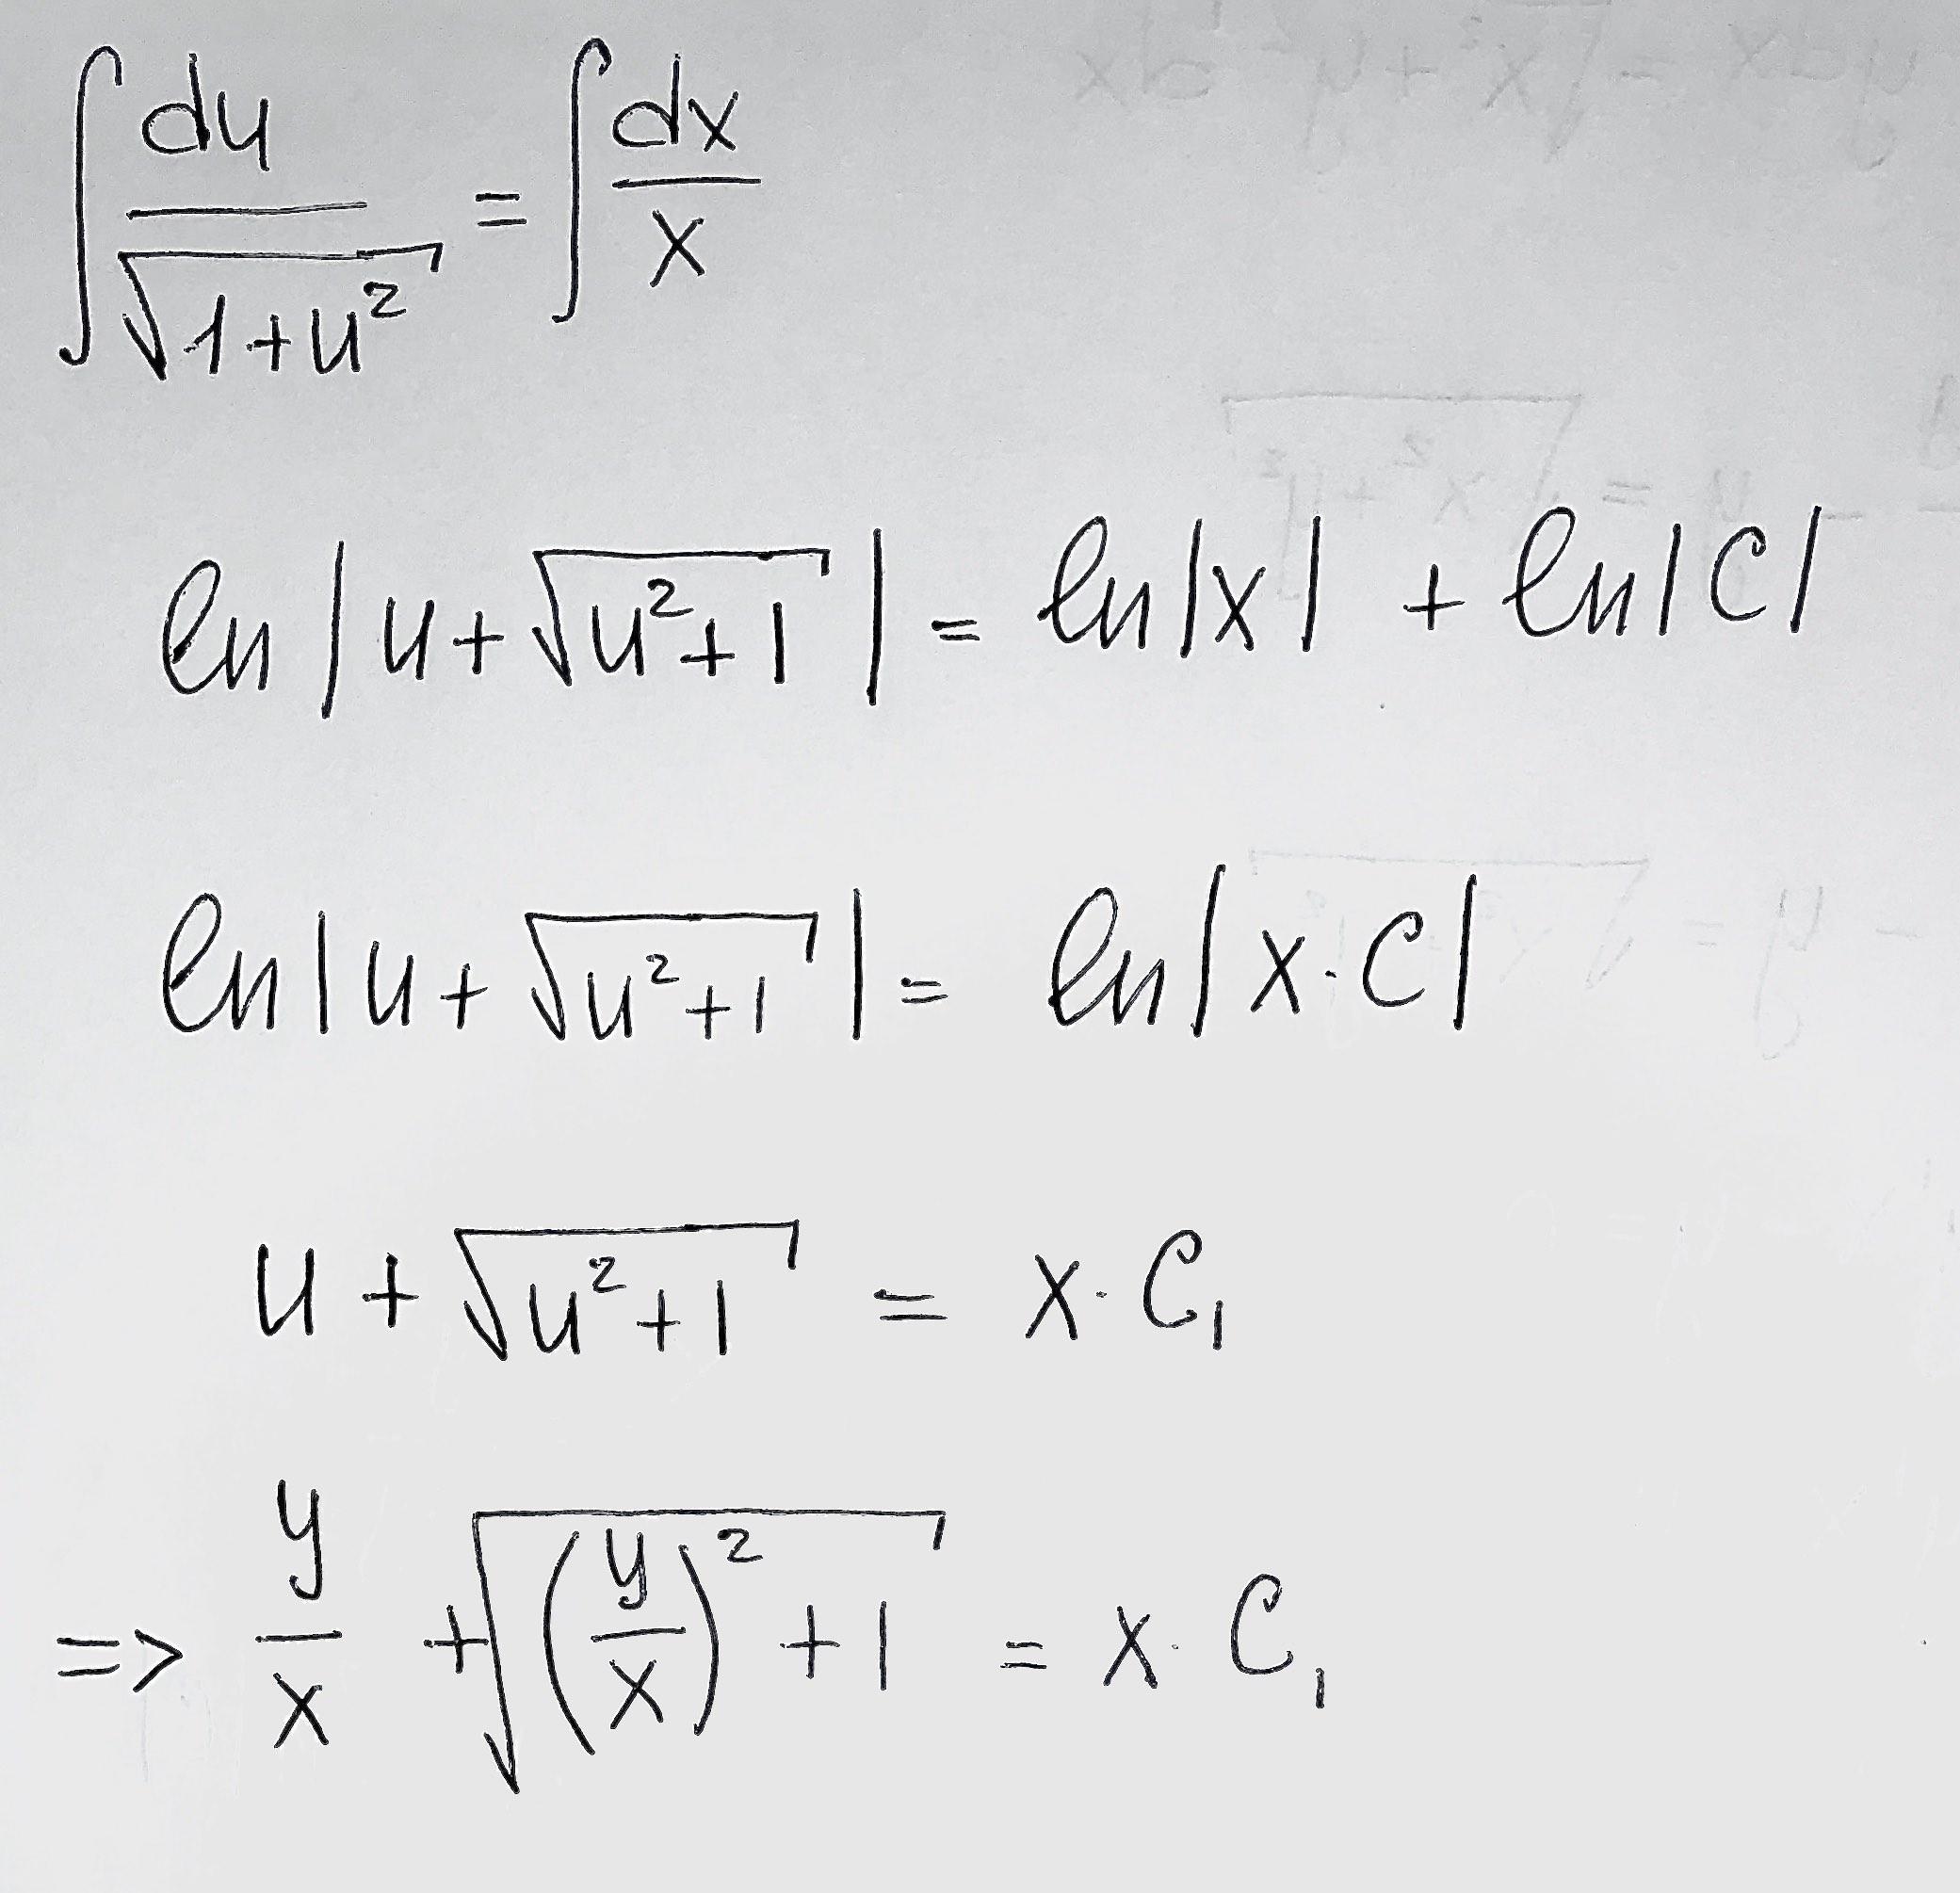 ∫ du / √(1+u²) = ∫ dx / x
ln |u+√(u²+1)| = ln|x| + ln|C|
ln|u+√(u²+1)| = ln|x·C|
u + √(u²+1) = x·C₁
=> y/x + √((y/x)²+1) = x·C₁